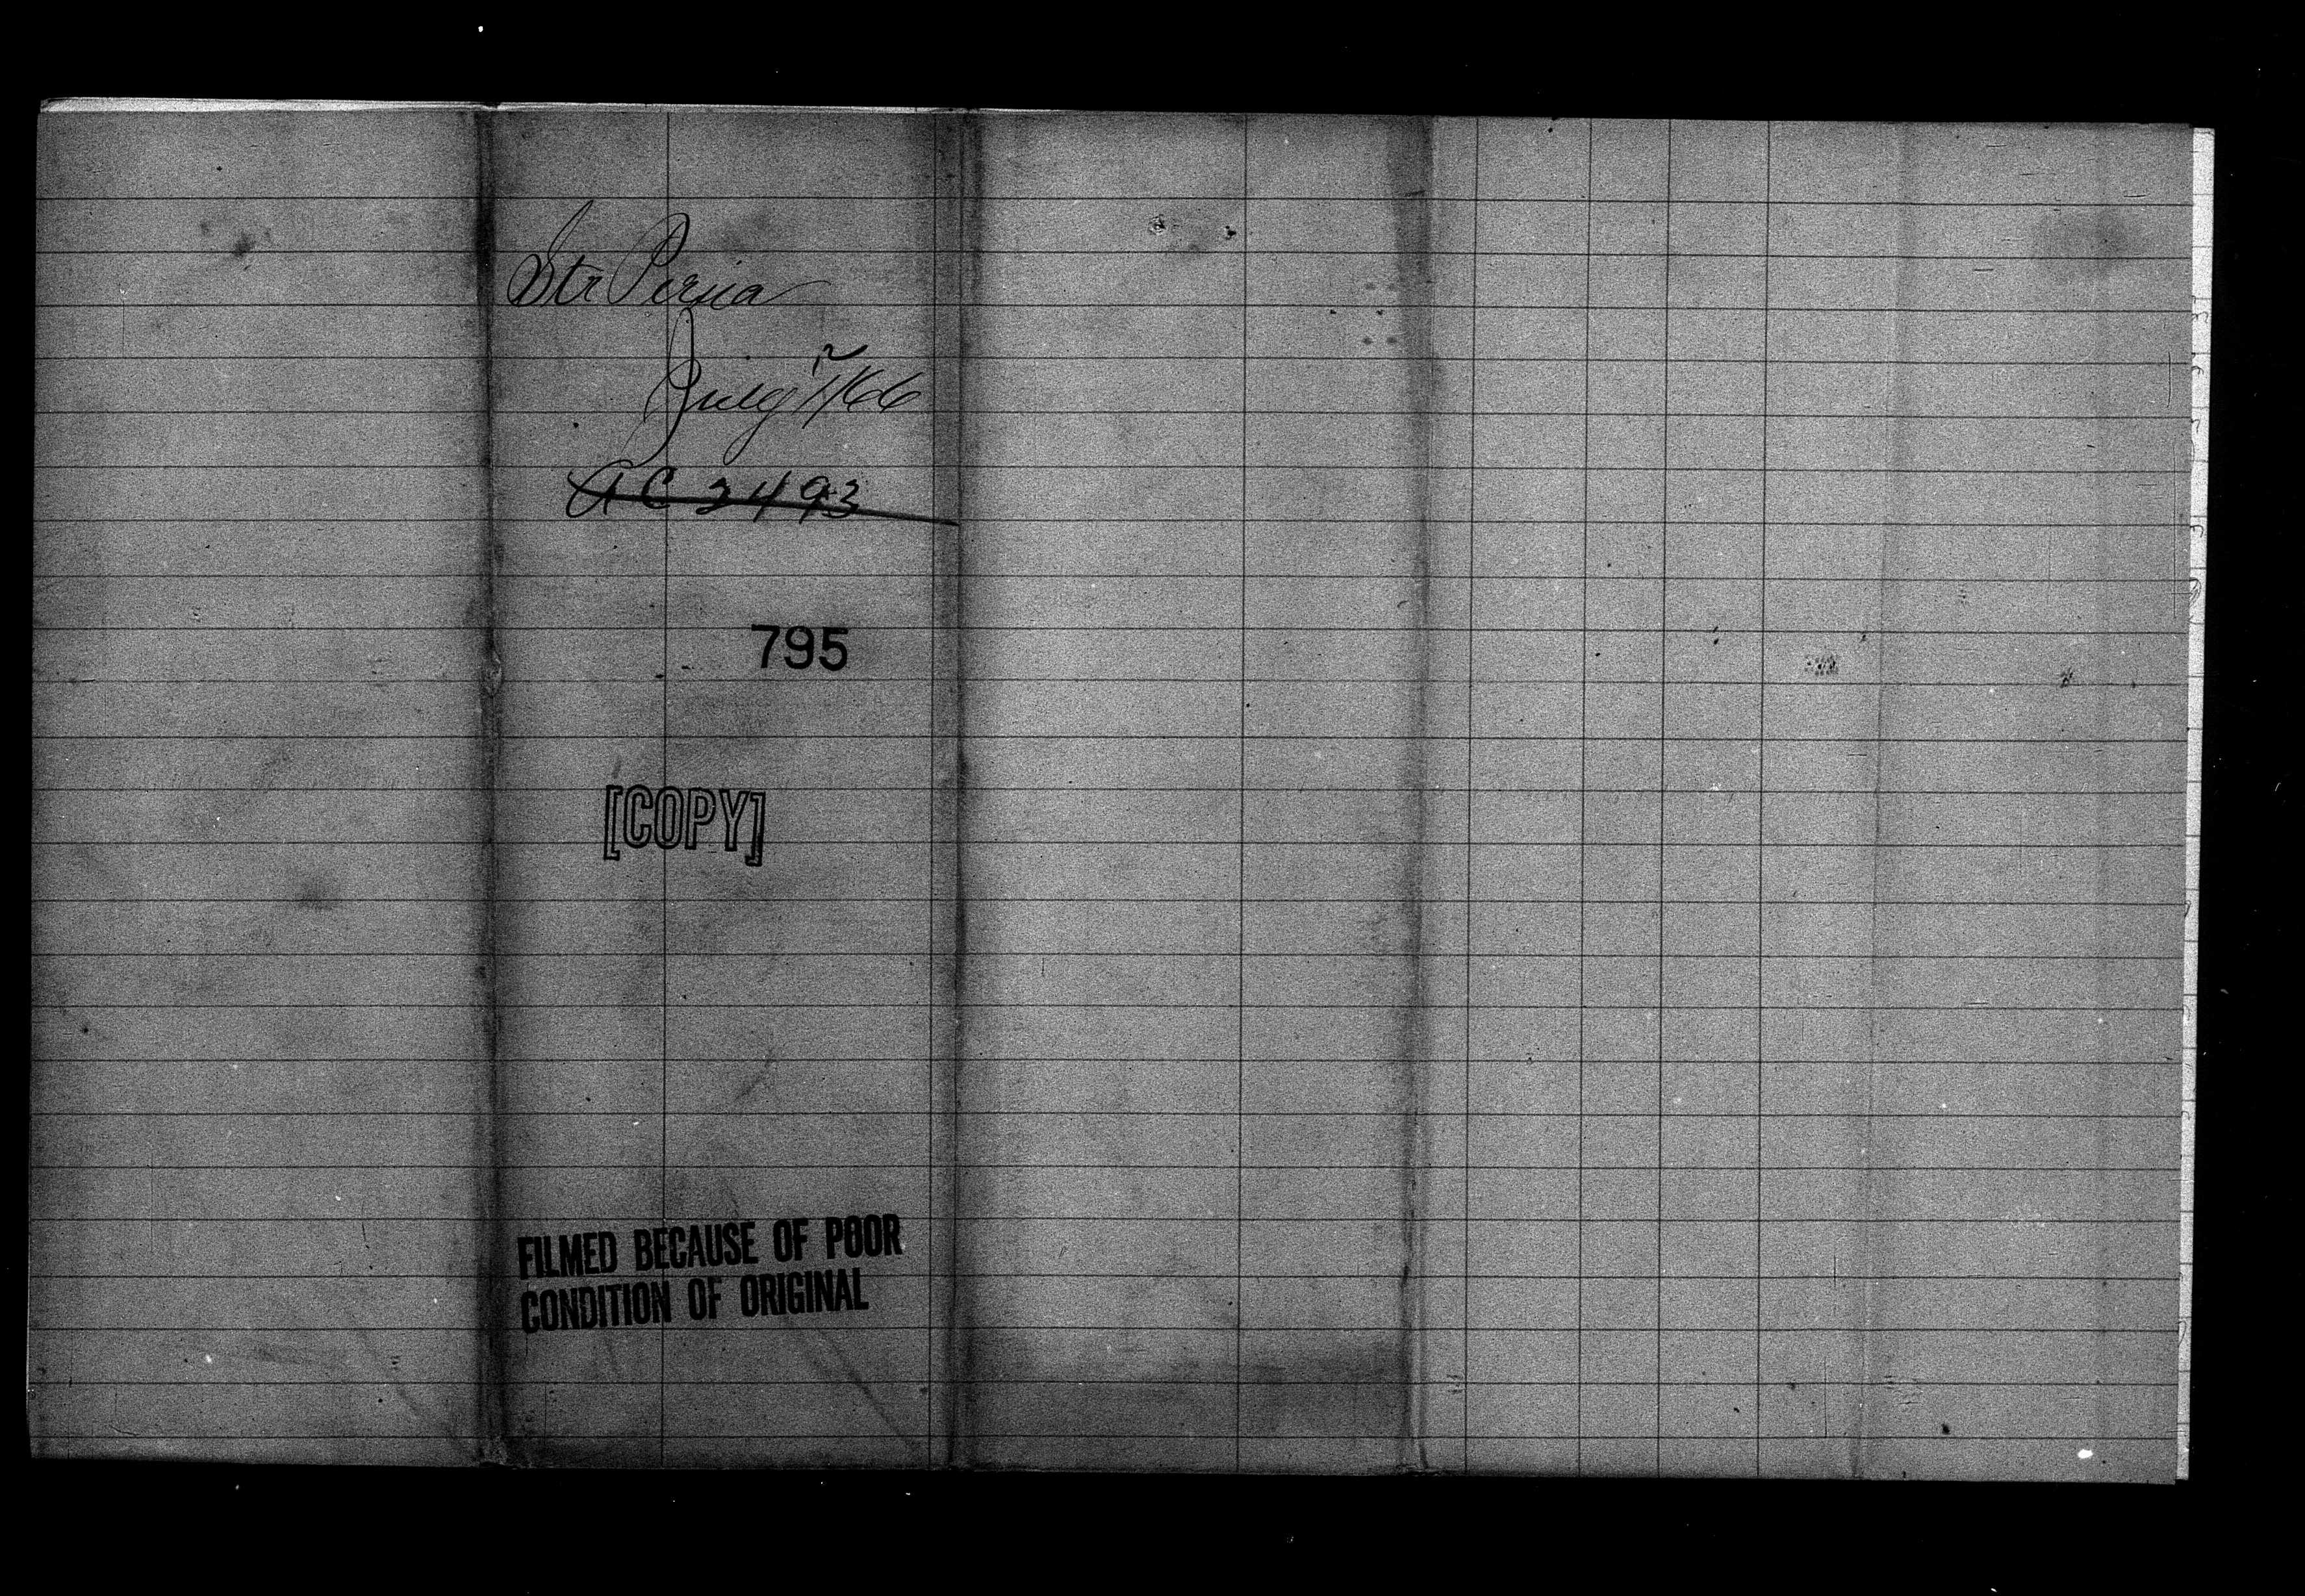 Str Persia
July 17/66
AC 2493
795
[COPY]
FILMED BECAUSE OF POOR
CONDITION OF ORIGINAL